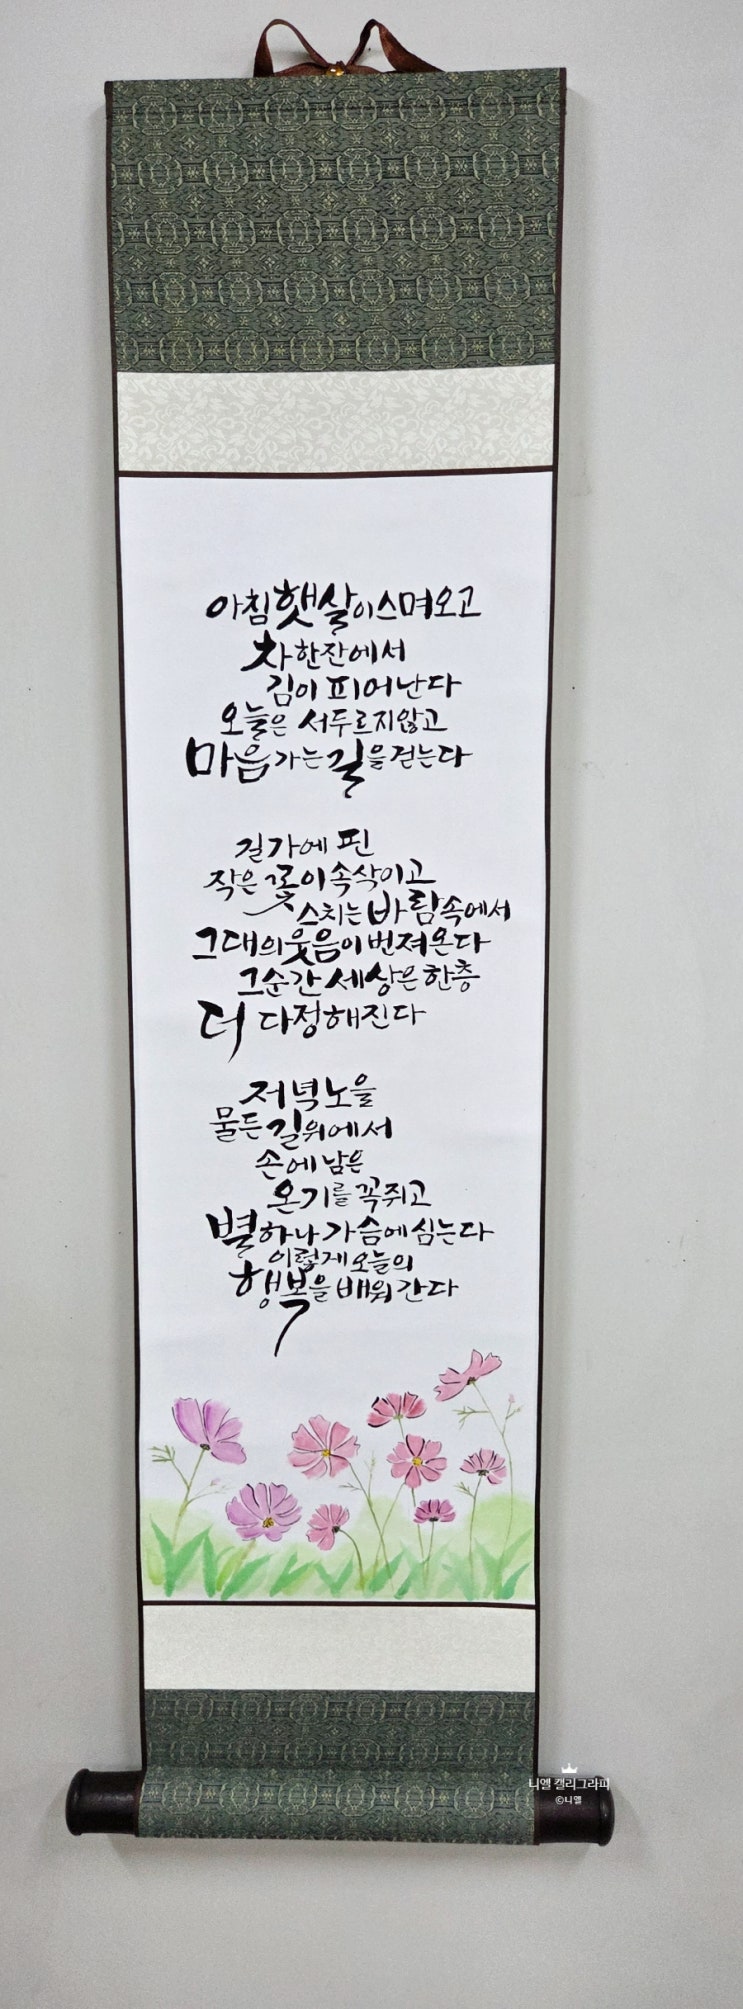 아침 햇살이 스며오고
차 한잔에서
김이 피어난다
오늘은 서두르지 않고
마음 가는 길을 걷는다
길가에 핀
작은 꽃이 속삭이고
스치는 바람속에서
그대의 웃음이 번져온다
그순간 세상은 한층
더 다정해진다
저녁노을
물든 길위에서
손에 남은
온기를 꼭쥐고
별하나 가슴에 심는다
이렇게 오늘의
행복을 배워간다
니엘 캘리그라피
©니엘